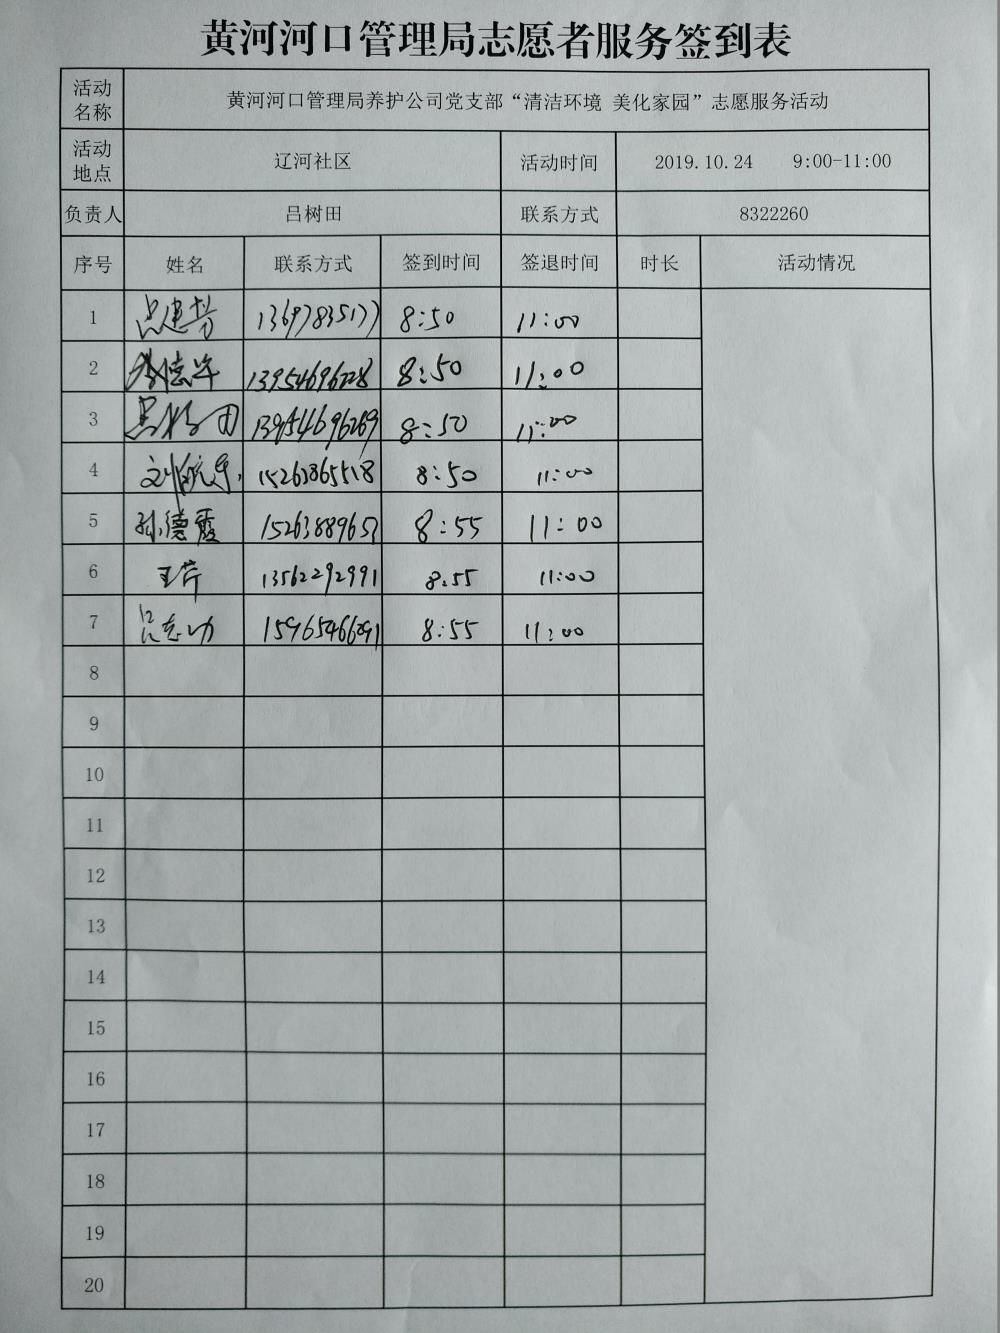 黄河河口管理局志愿者服务签到表
活动名称 黄河河口管理局养护公司党支部“清洁环境 美化家园”志愿服务活动
活动地点 辽河社区 活动时间 2019.10.24 9:00-11:00
负责人 吕树田 联系方式 8322260
序号 姓名 联系方式 签到时间 签退时间 时长 活动情况
1 8:50 11:00
2 13954696228 8:50 11:00
3 13954696269 8:50 11:00
4 15263865518 8:50 11:00
5 孙德霞 15263889651 8:55 11:00
6 王芹 13562292991 8:55 11:00
7 吕志功 15965466291 8:55 11:00
8
9
10
11
12
13
14
15
16
17
18
19
20